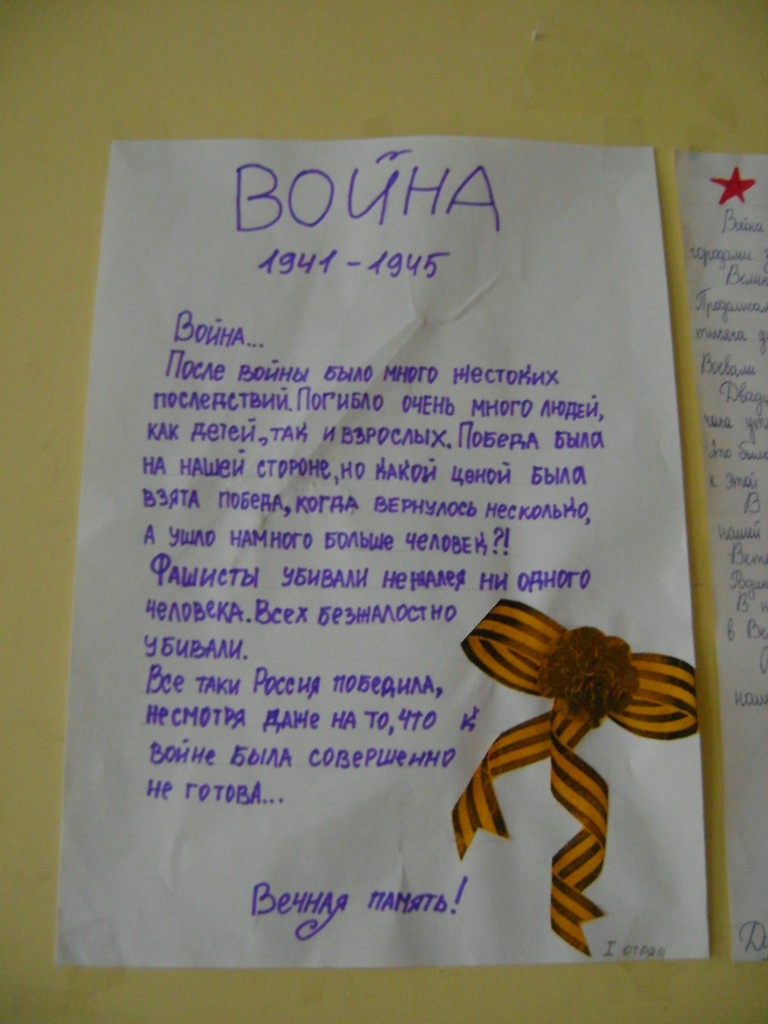 ВОЙНА
1941-1945
Война...
После войны было много жестоких
последствий. Погибло очень много людей,
как детей, так и взрослых. Победа была
на нашей стороне, но какой ценой была
взята победа, когда вернулось несколько,
а ушло намного больше человек?!
Фашисты убивали не жалея ни одного
человека. Всех безжалостно
убивали.
Все таки Россия победила,
несмотря даже на то, что к
войне была совершенно
не готова...
Вечная память!
I отряд
Война
городами
Продолжал
тысяча д
Воевали
Двад
чала ут
Это было
к этой
В
нашей
Вете
Родин
В н
в Ве
наш